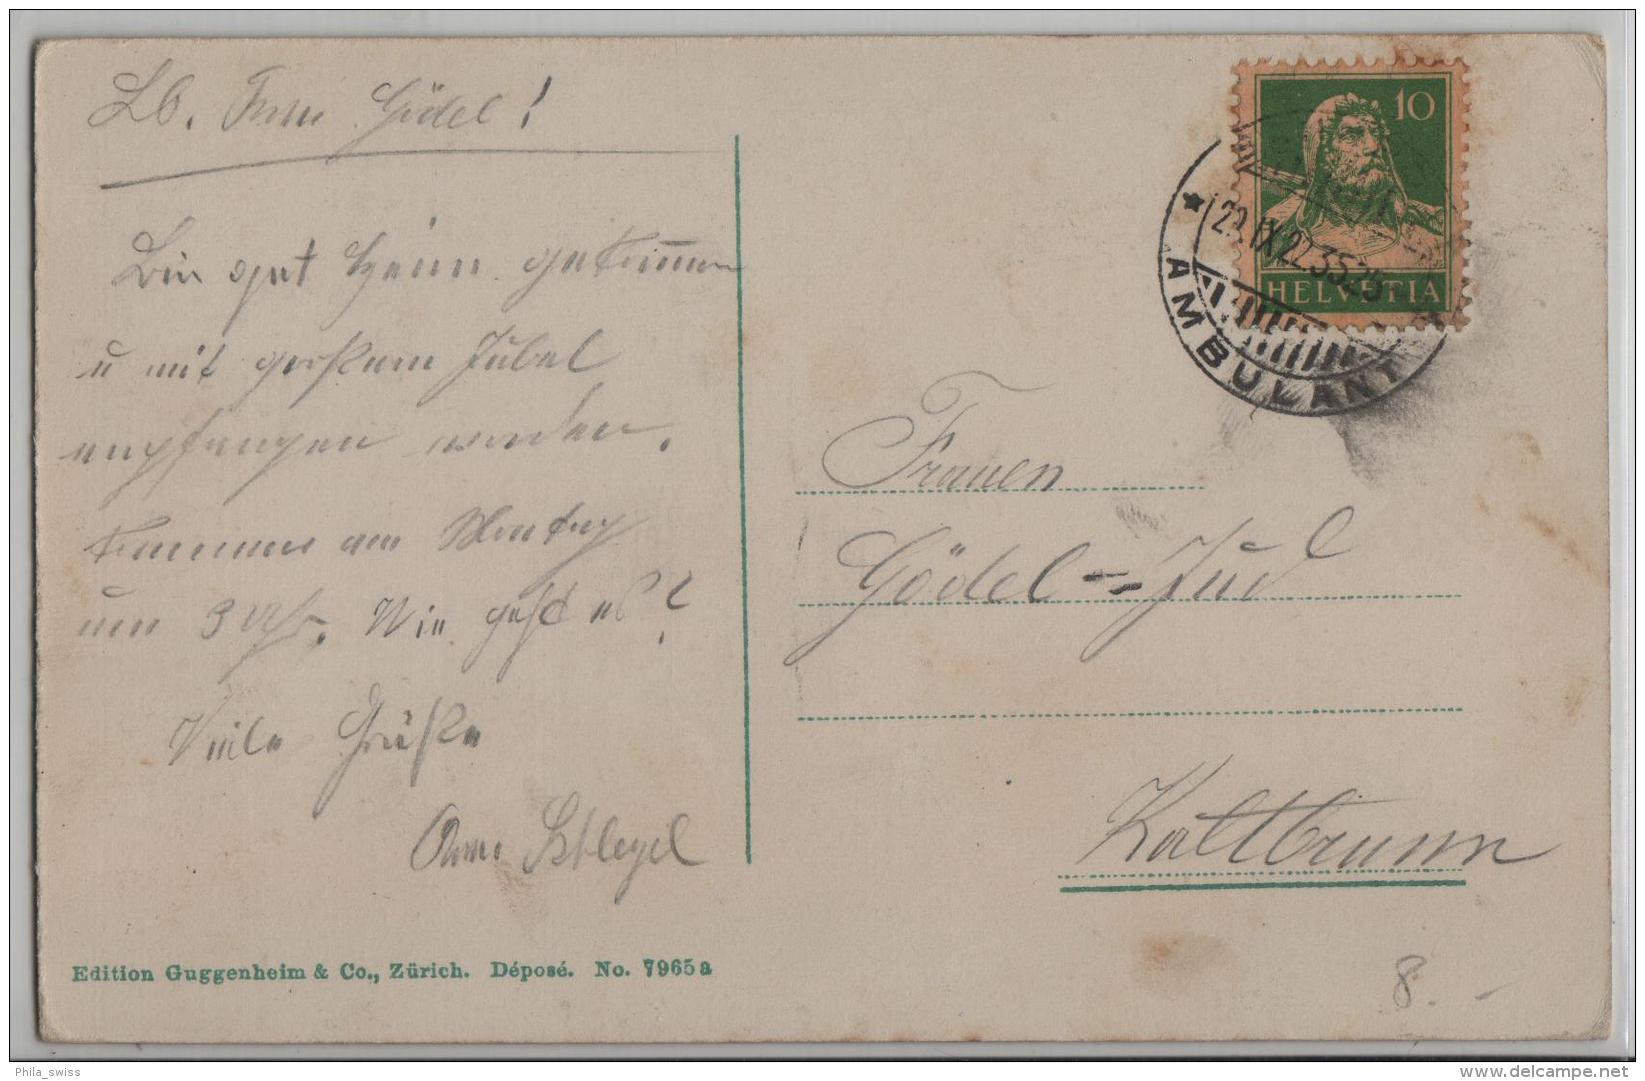 Lb. Frau Gödel!
Bin gut heim gekommen
u mit großem Jubel
empfangen worden.
kommen am Montag
um 3 Uhr. Wie geht es?
Viele Grüße
Schlegel
Edition Guggenheim & Co., Zürich. Déposé. No. 7965a
10
HELVETIA
29.IX.22.3525
AMBULANT
Frauen
Gödel-Jud
Kaltbrunn
8.-
Phila_swiss
www.delcampe.net